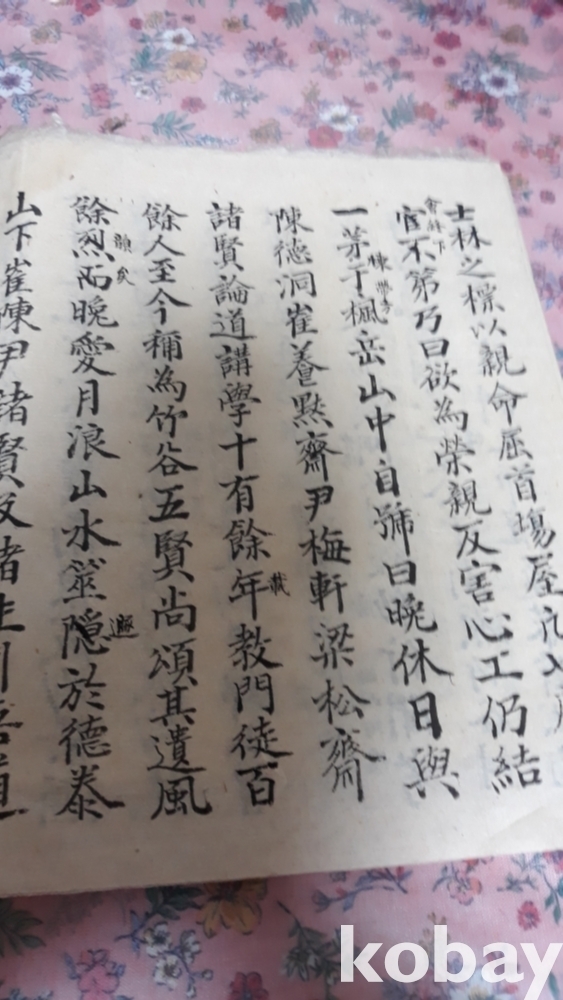 士林之標以親命屈首場屋
官不第乃曰欲為榮親反害心工仍結
會外下
一茅于楓岳山中自號曰晩休日與
棟
陳德洞崔養默齋尹梅軒梁松齋
諸賢論道講學十有餘年教門徒百
載
餘人至今稱為竹谷五賢尚頌其遺風
餘烈而晩愛月浪山水筮隱於德泰
韻矣
遯
山下崔陳尹諸賢及諸生
kobay